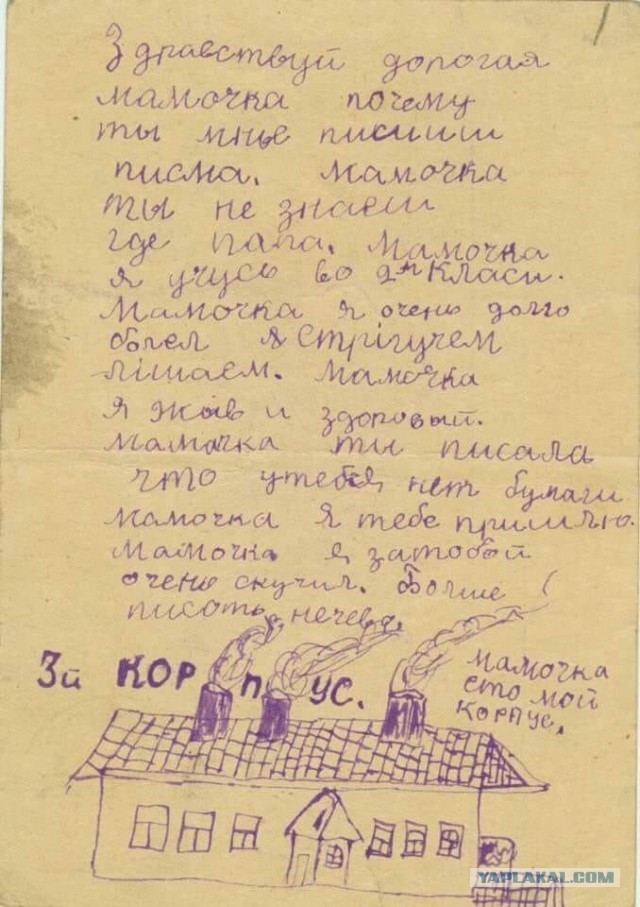 Здравствуй дорогая
мамочка почему
ты мнье писиши
писма. мамочка
ты не знаеш
где папа. мамочка
я учусь во 2м Класи.
мамочка я очень долго
болел я Стрігучем
лішаем. мамочка
я жыв и здоровый.
мамочка ты писала
что утебя нет бумаги
мамочка я тебе пришлю.
мамочка я затобой
очень скучил. Болше
писать нечево.
3й КОРПУС.
мамочка
ето мой
корпус.
YAPLAKAL.COM